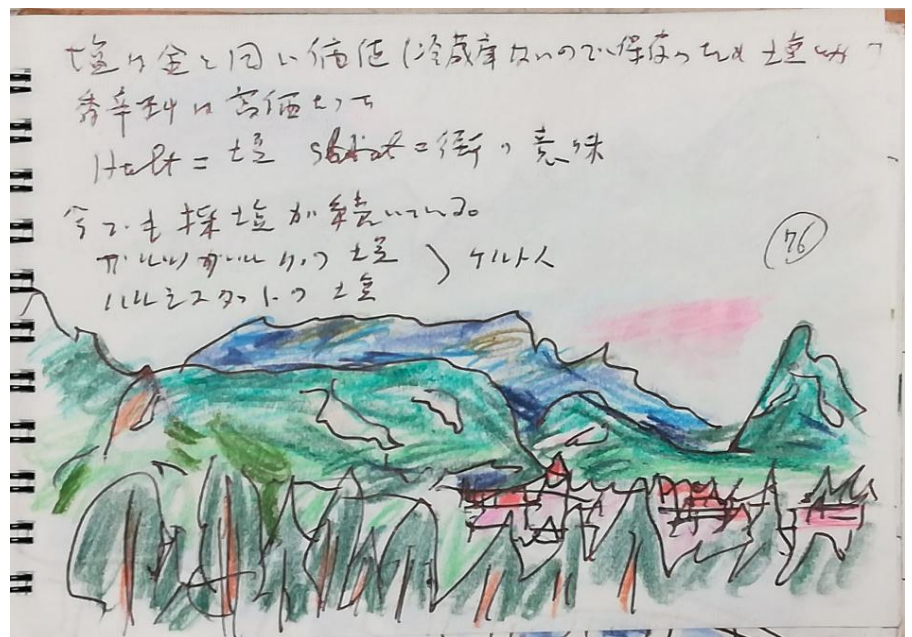 塩は金と同じ価値(冷蔵庫ないので保存のため塩か
香辛料は高価だった
Halt=塩 stadt=街の意味
今でも採塩が続いている。
の塩 ケルト人
ハルシュタットの塩
76